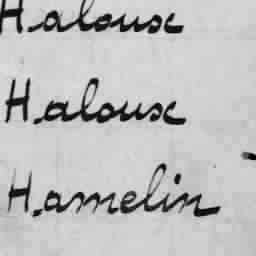 Haloux
Haloux
Hamelin